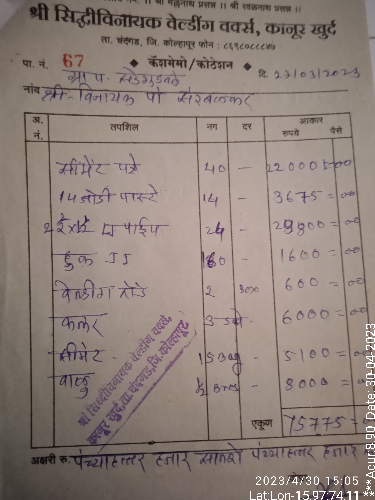 ।। श्री मल्लनाथ प्रसन्न ।। श्री रवळनाथ प्रसन्न ।।
श्री सिद्धीविनायक वेल्डींग वर्क्स, कानूर खुर्द
ता. चंदगड, जि. कोल्हापूर फोन : ८६९८०८८८४७
पा. नं. 67 ◆ कॅशमेमो/कोटेशन ◆ दि. 27/03/2023
नांव श्री. विनायक पो
अ. नं. तपशिल नग दर आकार रुपये पैसे
सीमेंट पत्रे 40 – 22000 = 00
14 जोडी 14 – 3675 = 00
पाईप 24 – = 00
हुक JJ 160 – 1600 = 00
वेल्डींग रॉड 2 300 600 = 00
कलर 3 डबे 6000 = 00
सीमेंट 15 – 5100 = 00
वाळु ½ ब्रास – 8000 = 00
श्री सिद्धीविनायक वेल्डींग वर्क्स,
कानूर खुर्द, ता. चंदगड, जि. कोल्हापूर
एकूण 75775 = 00
अक्षरी रु. पंच्याहत्तर हजार सातशे पंच्याहत्तर हजार
2023/4/30 15:05
Lat:Lon-15.97:74.11
***Acur:8.90 Date: 30-04-2023